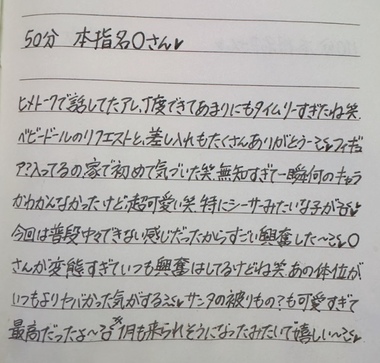 50分 本指名〇さん♥
ヒメトークで話してたアレ、丁度できてあまりにもタイムリーすぎたね笑
ベビードールのリクエストと、差し入れもたくさんありがとう〜♥フィギュ
ア?入ってるの家で初めて気づいた笑 無知すぎて一瞬何のキャラ
かわかんなかったけど超可愛い笑 特にシーサーみたいな子が
今回は普段中々できない感じだったからすごい興奮した〜♥〇
さんが変態すぎていつも興奮はしてるけどね笑 あの体位が
いつもよりヤバかった気がする♥サンタの被りもの?も可愛すぎて
最高だったよ〜 月も来られそうになったみたいで嬉しい〜♥